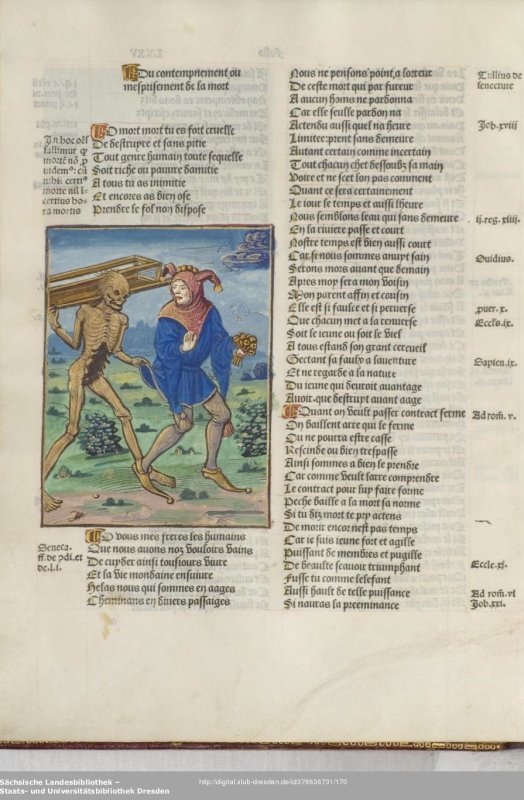 Du contempnement ou
mesprisement de la mort
O mort mort tu es fort cruelle
De destruyre et sans pitie
Tout genre humain toute sequelle
Soit riche ou pauure damitie
A tous tu as inimitie
Et encores as bien ose
Prendre le fol non dispose
In hoc oēs
fallimur
morte
certius ho
ra mortis
O vous mes freres les humains
Que nous auons noz vouloirs vains
De cuyder ainsi tousiours viure
Et la vie mondaine ensuiure
Helas nous qui sommes en aages
Cheminans en diuers passaiges
Seneca.
de.l.i.
Nous ne pensons point a lorreur
De ceste mort qui par fureur
A aucun homs ne pardonna
Car elle seulle pardon na
Actendu aussi quel na heure
Limitee: prent sans demeure
Autant certain comme incertain
Tout chacun chet dessoubz sa main
Voire et ne scet lon pas comment
Quant ce sera certainement
Le iour le temps et aussi lheure
Nous semblons leau qui sans demeure
En la riuiere passe et court
Nostre temps est bien aussi court
Car si nous sommes anuyt sain
Serons mors auant que demain
Apres moy sera mon voisin
Mon parent affin et cousin
Elle est si faulce et si peruerse
Que chacun met a la renuerse
Soit le ieune ou soit le viel
A tous estand son grant cercueil
Gectant sa faulx a lauenture
Et ne regarde a la nature
Du ieune qui deuroit auantage
Auoir. que destruyt auant aage
Quant on veult passer contract ferme
On baillent arre qui le ferme
Ou ne pourra estre casse
Rescinde ou bien trespasse
Ainsi sommes a bien le prendre
Car comme veult larre comprendre
Le contract pour luy faire forme
Peche baille a la mort sa norme
Si tu diz mort te pry actens
De morir encor nest pas temps
Car ie suis ieune fort et agille
Puissant de membres et pugille
De beaulte scauoir triumphant
Fusse tu comme lelefant
Aussi hault de telle puissance
Si nauras la preeminance
Tullius de
senectute
Job.xviii
ij.reg.xiiii.
Ouidius.
puer.x.
Eccls.ix.
Sapien.ix.
Ad rom̄. v.
Eccle.xi.
Ad rom̄.vi
Job.xxi.
Sächsische Landesbibliothek –
Staats- und Universitätsbibliothek Dresden
http://digital.slub-dresden.de/id378636731/170